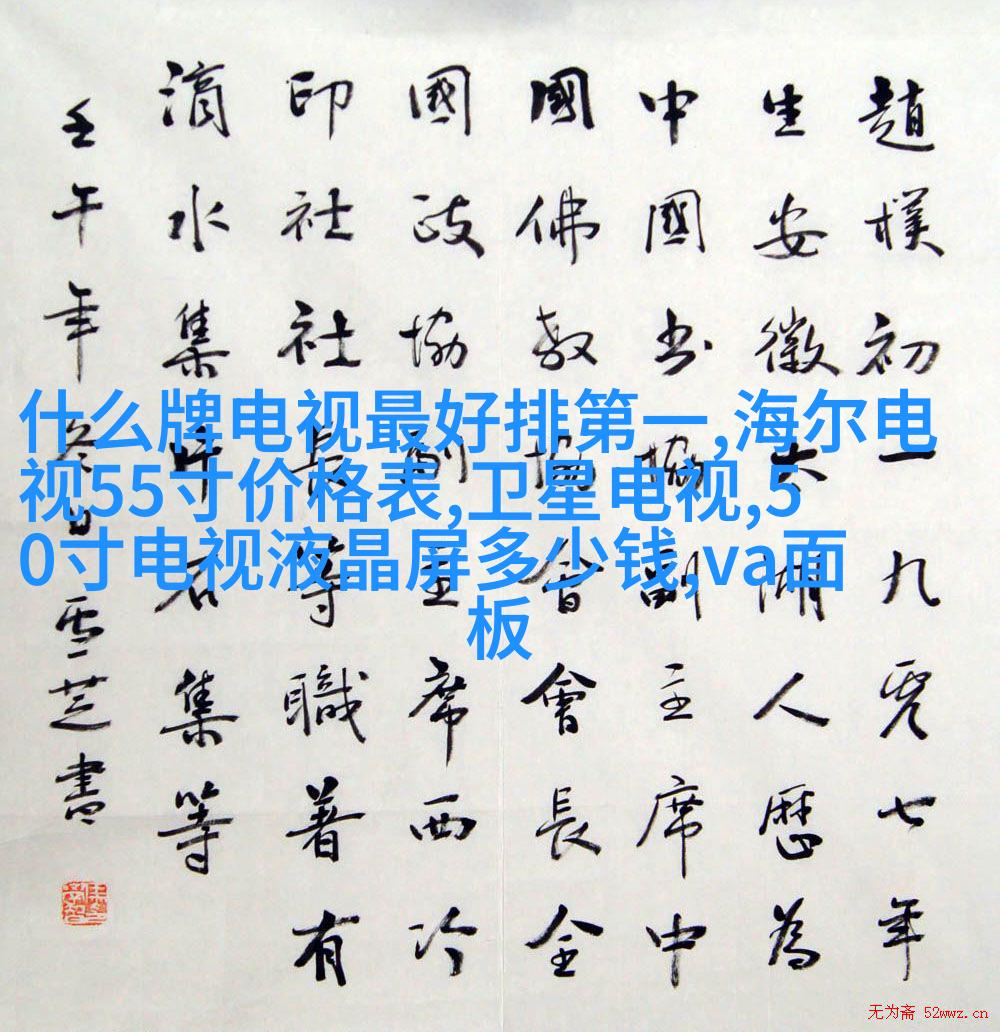 趙樸初一九零七年
生安徽太湖人歷為
中國书協副主席中
國佛教協會會長全
國政協副主席西冷
印社社長等職著有
滴水集片石集等
壬午年冬日雪芝書
什么牌电视最好排第一,海尔电
视55寸价格表,卫星电视,5
0寸电视液晶屏多少钱,va面
板
无为斋 52wwz.cn